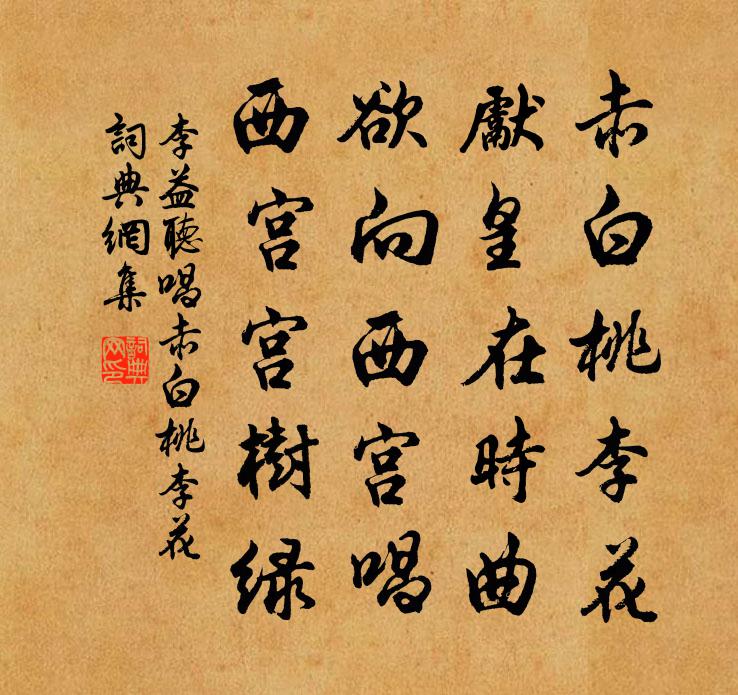 赤白桃李花
獻皇在時曲
欲向西宫唱
西宫宫樹绿
李益聽唱赤白桃李花
詞典網集
詞典网印